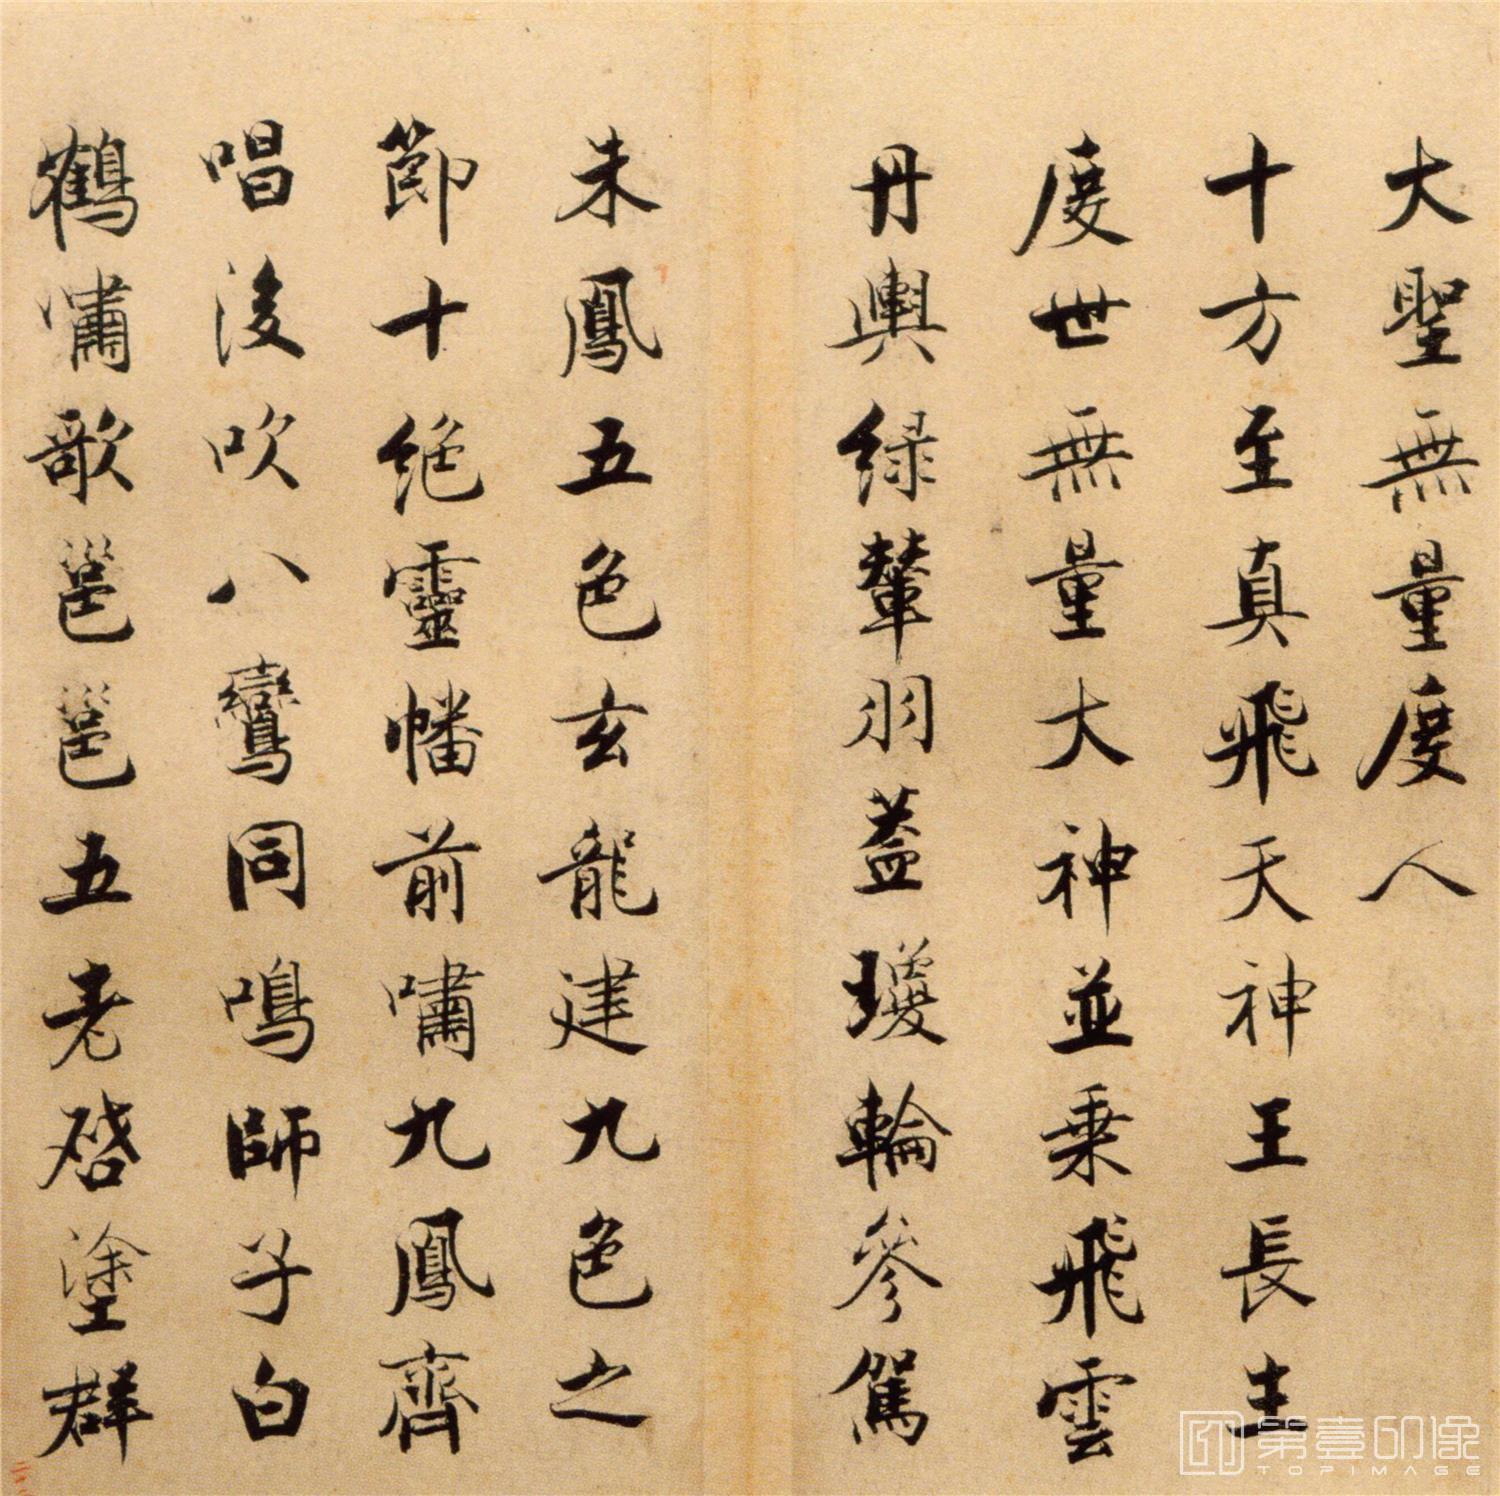 大聖無量度人
十方至真飛天神王長生
度世無量大神並乗飛雲
丹輿緑輦羽蓋瓊輪參駕
朱鳳五色玄龍建九色之
節十絶靈幡前嘯九鳳齊
唱後吹八鸞同鳴師子白
鶴嘯歌邕邕五老啓塗群
第壹印像
TOPIMAGE